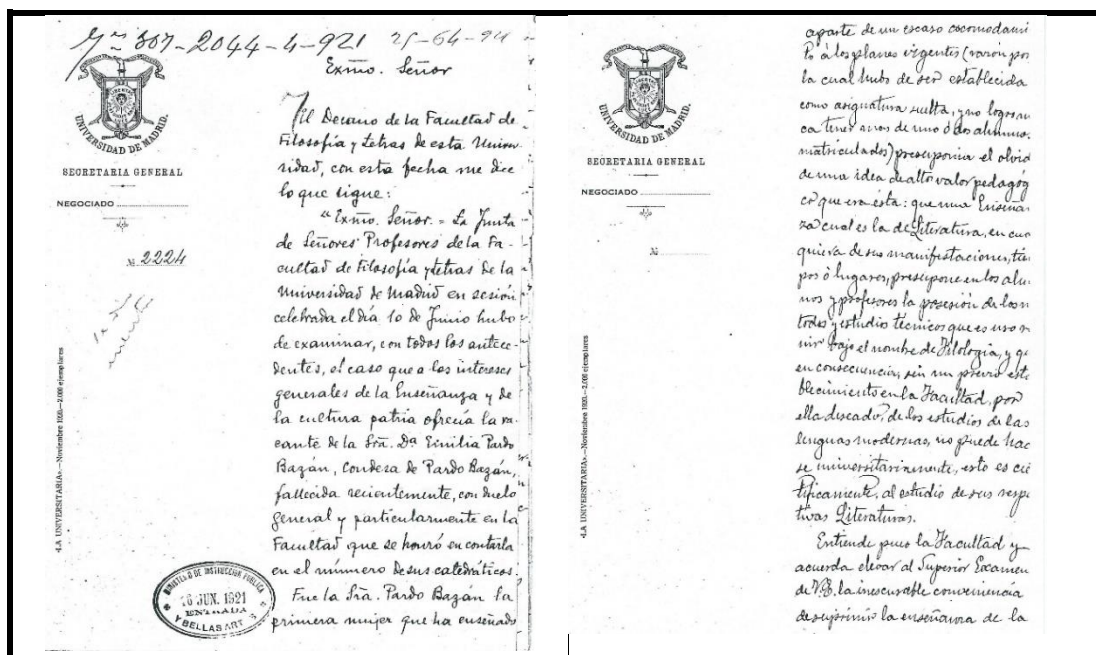 307-2044-4-921
Exmo. Señor
UNIVERSIDAD DE MADRID.
SECRETARIA GENERAL
NEGOCIADO
№ 2224
«LA UNIVERSITARIA».—Noviembre 1920.—2.000 ejemplares
El Decano de la Facultad de
Filosofía y Letras de esta Univer-
sidad, con esta fecha me dice
lo que sigue:
"Exmo. Señor. = La Junta
de Señores Profesores de la Fa-
cultad de Filosofía y Letras de la
Universidad de Madrid en sesión
celebrada el día 10 de Junio hubo
de examinar, con todos los antece-
dentes, el caso que a los intereses
generales de la Enseñanza y de
la cultura patria ofrecía la va-
cante de la Sra. Dª Emilia Pardo
Bazán, Condesa de Pardo Bazán,
fallecida recientemente, con duelo
general y particularmente en la
Facultad que se honró en contarla
en el número de sus catedráticos.
Fue la Sra. Pardo Bazán la
primera mujer que ha enseñado
MINISTERIO DE INSTRUCCION PUBLICA
16 JUN. 1921
ENTRADA
Y BELLAS ART
UNIVERSIDAD DE MADRID.
SECRETARIA GENERAL
NEGOCIADO
№
«LA UNIVERSITARIA».—Noviembre 1920.—2.000 ejemplares
aparte de un escaso acomodami
to á los planes vigentes (razón por
la cual hubo de ser establecida
como asignatura suelta, y no logró nun
ca tener mas de uno ó dos alumnos
matriculados) presuponia el olvid
de una idea de alto valor pedagóg
co que era ésta: que una Enseñan
za cual es la de Literatura, en cual
quiera de sus manifestaciones, tiem
pos ó lugares, presupone en los alum
nos y profesores la posesión de los m
todos y estudio técnicos que es uso r
nir bajo el nombre de Filología, y qu
en consecuencia, sin un previo esta
blecimiento en la Facultad, por
ella deseado, de los estudios de las
lenguas modernas, no puede hac
se universitariamente, esto es cie
tíficamente, al estudio de sus respe
tivas Literaturas.
Entiende pues la Facultad y
acuerda elevar al Superior Examen
de V.E. la inexcusable conveniencia
de suprimir la enseñanza de la